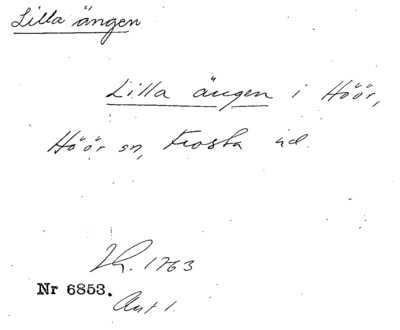 Lilla ängen
Lilla ängen i Höör,
Höör sn, Frosta hd.
Lh. 1763
Nr 6853.
Akt 1.